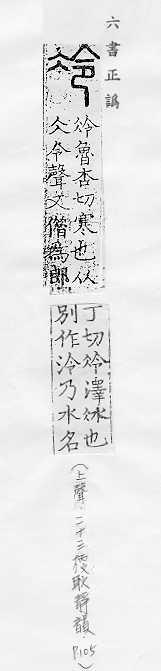 六書正譌
冷
冷魯杏切寒也从
仌令聲又借爲郎
丁切冷澤冰也
別作泠乃水名
(上聲.二十三梗耿靜韻.P.105)